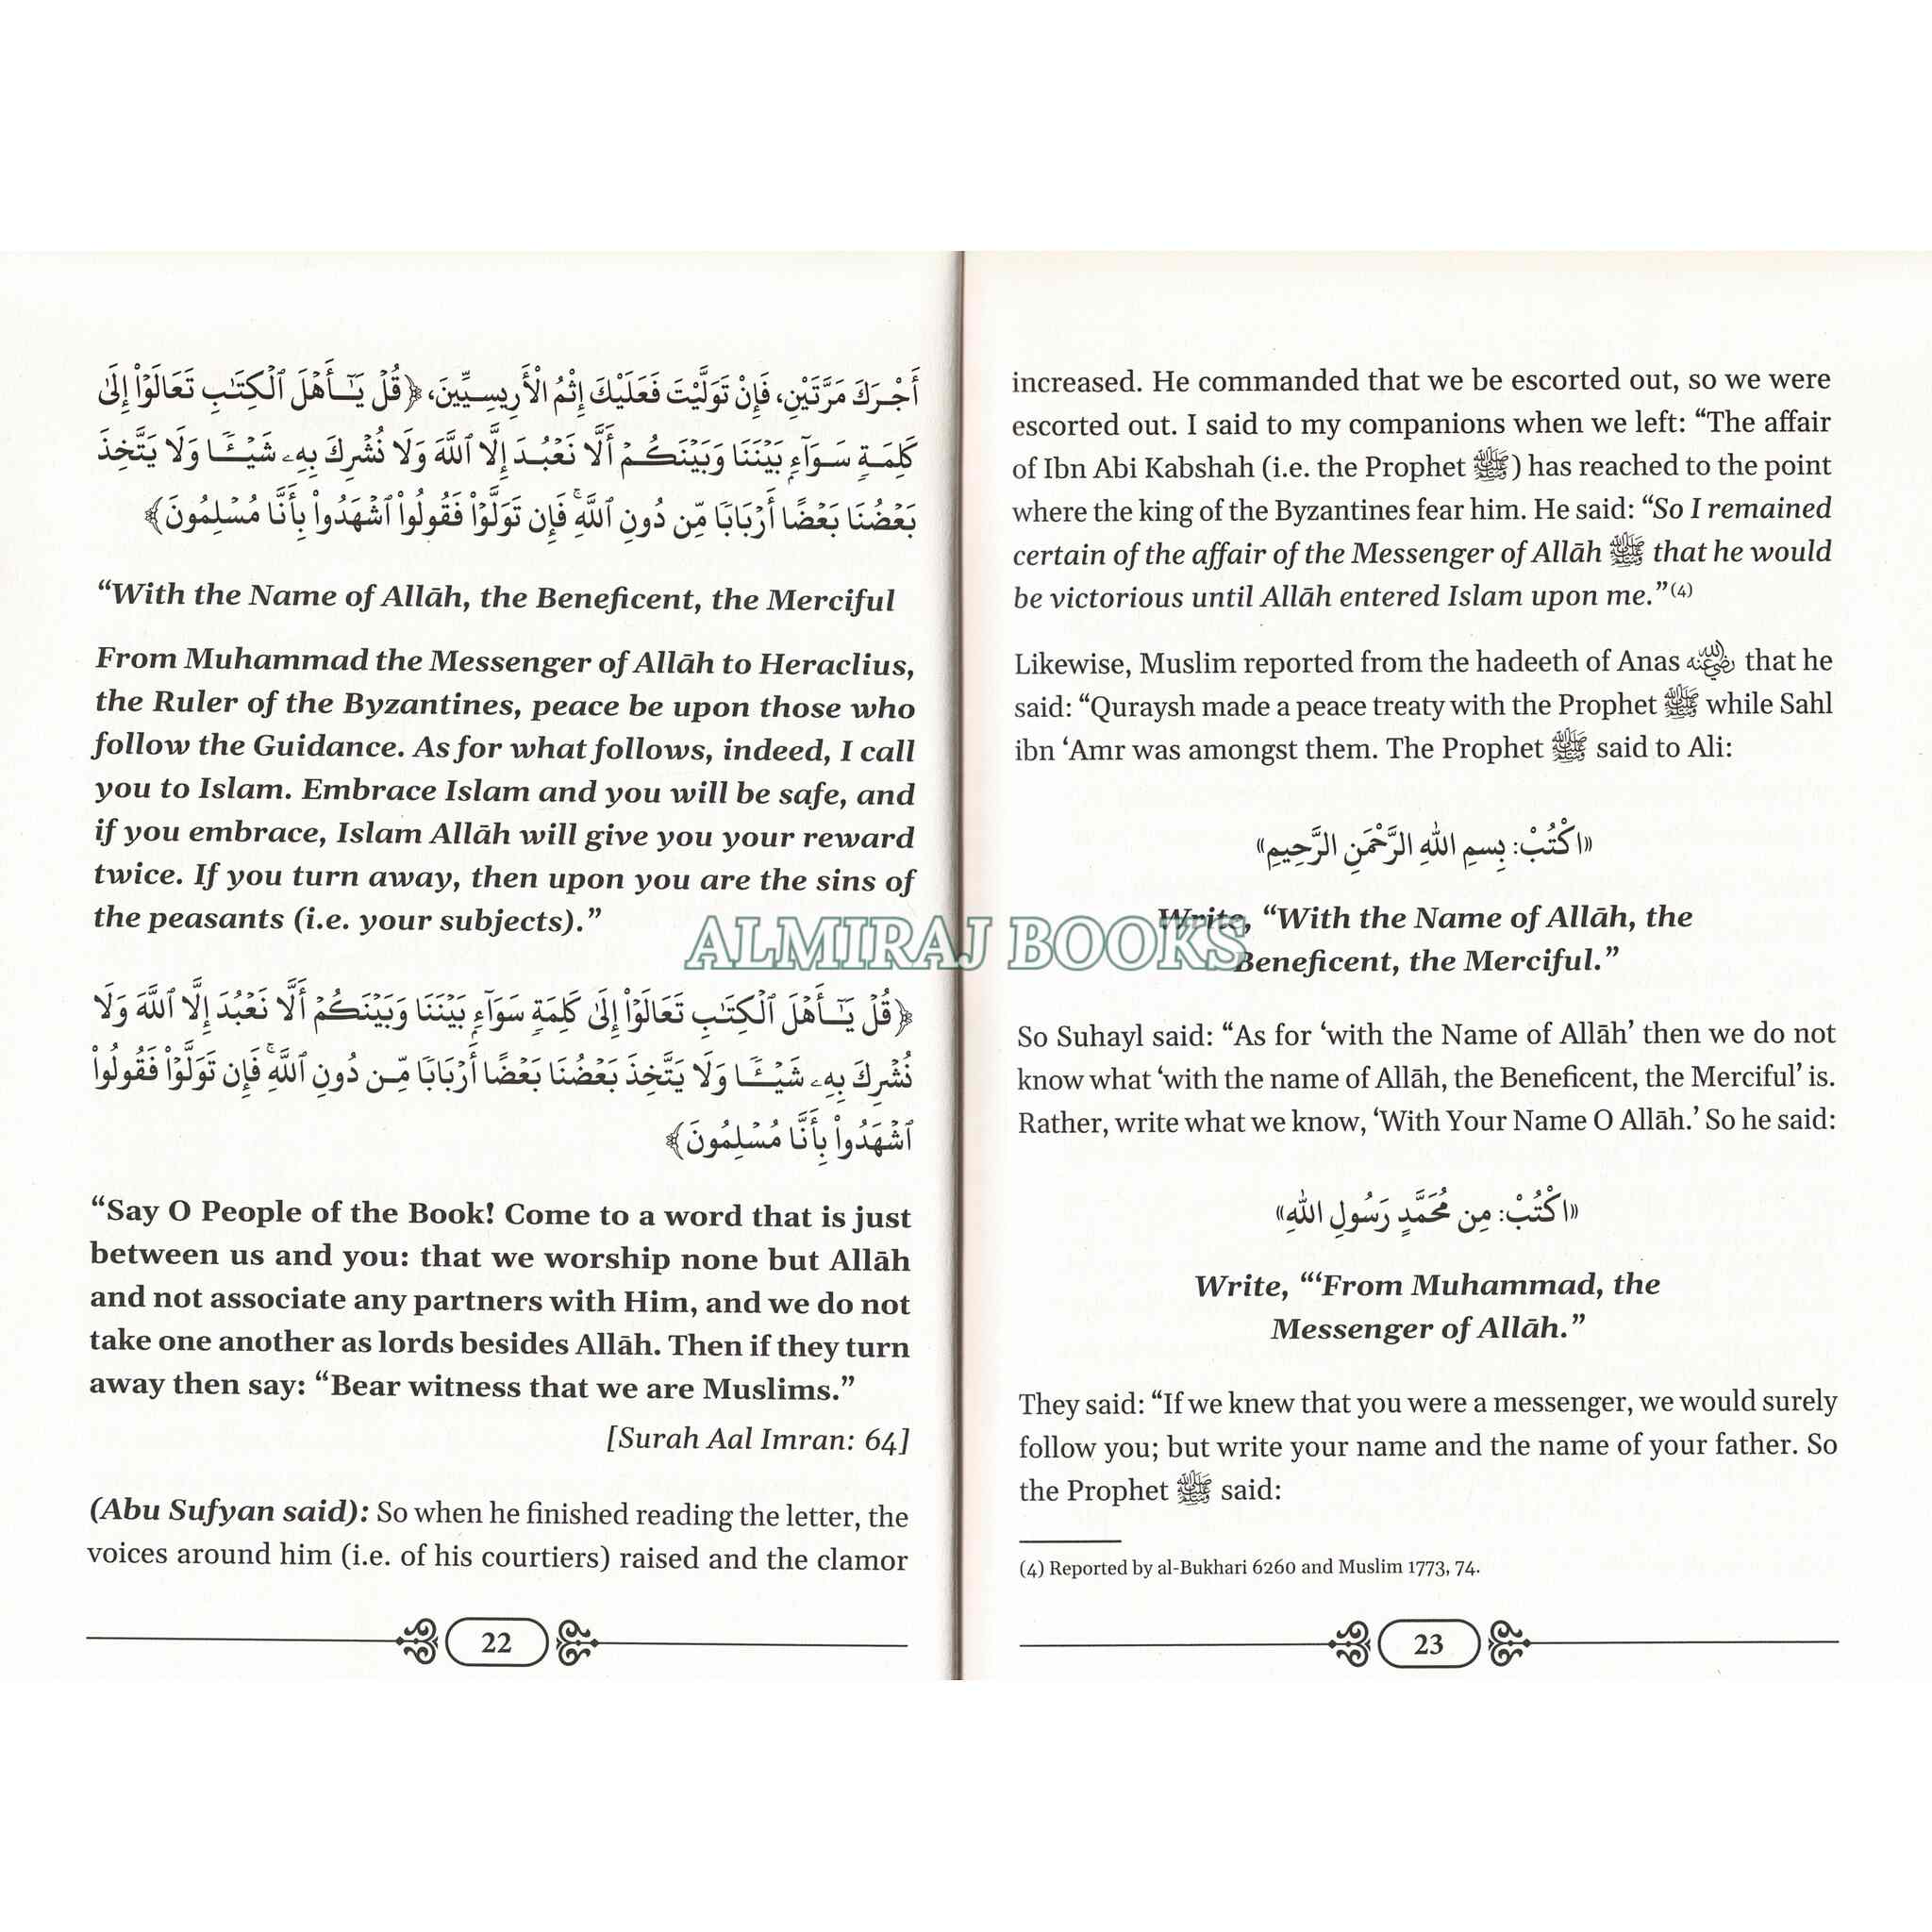 أَجْرَكَ مَرَّتَيْنِ، فَإِنْ تَوَلَّيْتَ فَعَلَيْكَ إِثْمُ الْأَرِيسِيِّينَ، ﴿قُلْ يَـٰٓأَهْلَ ٱلْكِتَـٰبِ تَعَالَوْا۟ إِلَىٰ
كَلِمَةٍ سَوَآءٍۭ بَيْنَنَا وَبَيْنَكُمْ أَلَّا نَعْبُدَ إِلَّا ٱللَّهَ وَلَا نُشْرِكَ بِهِۦ شَيْـًٔا وَلَا يَتَّخِذَ
بَعْضُنَا بَعْضًا أَرْبَابًا مِّن دُونِ ٱللَّهِ ۚ فَإِن تَوَلَّوْا۟ فَقُولُوا۟ ٱشْهَدُوا۟ بِأَنَّا مُسْلِمُونَ﴾
“With the Name of Allāh, the Beneficent, the Merciful
From Muhammad the Messenger of Allāh to Heraclius,
the Ruler of the Byzantines, peace be upon those who
follow the Guidance. As for what follows, indeed, I call
you to Islam. Embrace Islam and you will be safe, and
if you embrace, Islam Allāh will give you your reward
twice. If you turn away, then upon you are the sins of
the peasants (i.e. your subjects).”
﴿قُلْ يَـٰٓأَهْلَ ٱلْكِتَـٰبِ تَعَالَوْا۟ إِلَىٰ كَلِمَةٍ سَوَآءٍۭ بَيْنَنَا وَبَيْنَكُمْ أَلَّا نَعْبُدَ إِلَّا ٱللَّهَ وَلَا
نُشْرِكَ بِهِۦ شَيْـًٔا وَلَا يَتَّخِذَ بَعْضُنَا بَعْضًا أَرْبَابًا مِّن دُونِ ٱللَّهِ ۚ فَإِن تَوَلَّوْا۟ فَقُولُوا۟
ٱشْهَدُوا۟ بِأَنَّا مُسْلِمُونَ﴾
“Say O People of the Book! Come to a word that is just
between us and you: that we worship none but Allāh
and not associate any partners with Him, and we do not
take one another as lords besides Allāh. Then if they turn
away then say: “Bear witness that we are Muslims.”
[Surah Aal Imran: 64]
(Abu Sufyan said): So when he finished reading the letter, the
voices around him (i.e. of his courtiers) raised and the clamor
22
increased. He commanded that we be escorted out, so we were
escorted out. I said to my companions when we left: “The affair
of Ibn Abi Kabshah (i.e. the Prophet ﷺ) has reached to the point
where the king of the Byzantines fear him. He said: “So I remained
certain of the affair of the Messenger of Allāh ﷺ that he would
be victorious until Allāh entered Islam upon me.”(4)
Likewise, Muslim reported from the hadeeth of Anas رضي الله عنه that he
said: “Quraysh made a peace treaty with the Prophet ﷺ while Sahl
ibn ‘Amr was amongst them. The Prophet ﷺ said to Ali:
«اكْتُبْ: بِسمِ اللهِ الرَّحْمَنِ الرَّحِيمِ»
Write, “With the Name of Allāh, the
Beneficent, the Merciful.”
So Suhayl said: “As for ‘with the Name of Allāh’ then we do not
know what ‘with the name of Allāh, the Beneficent, the Merciful’ is.
Rather, write what we know, ‘With Your Name O Allāh.’ So he said:
«اكْتُبْ: مِن مُحَمَّدٍ رَسُولِ اللهِ»
Write, “‘From Muhammad, the
Messenger of Allāh.”
They said: “If we knew that you were a messenger, we would surely
follow you; but write your name and the name of your father. So
the Prophet ﷺ said:
(4) Reported by al-Bukhari 6260 and Muslim 1773, 74.
23
ALMIRAJ BOOKS